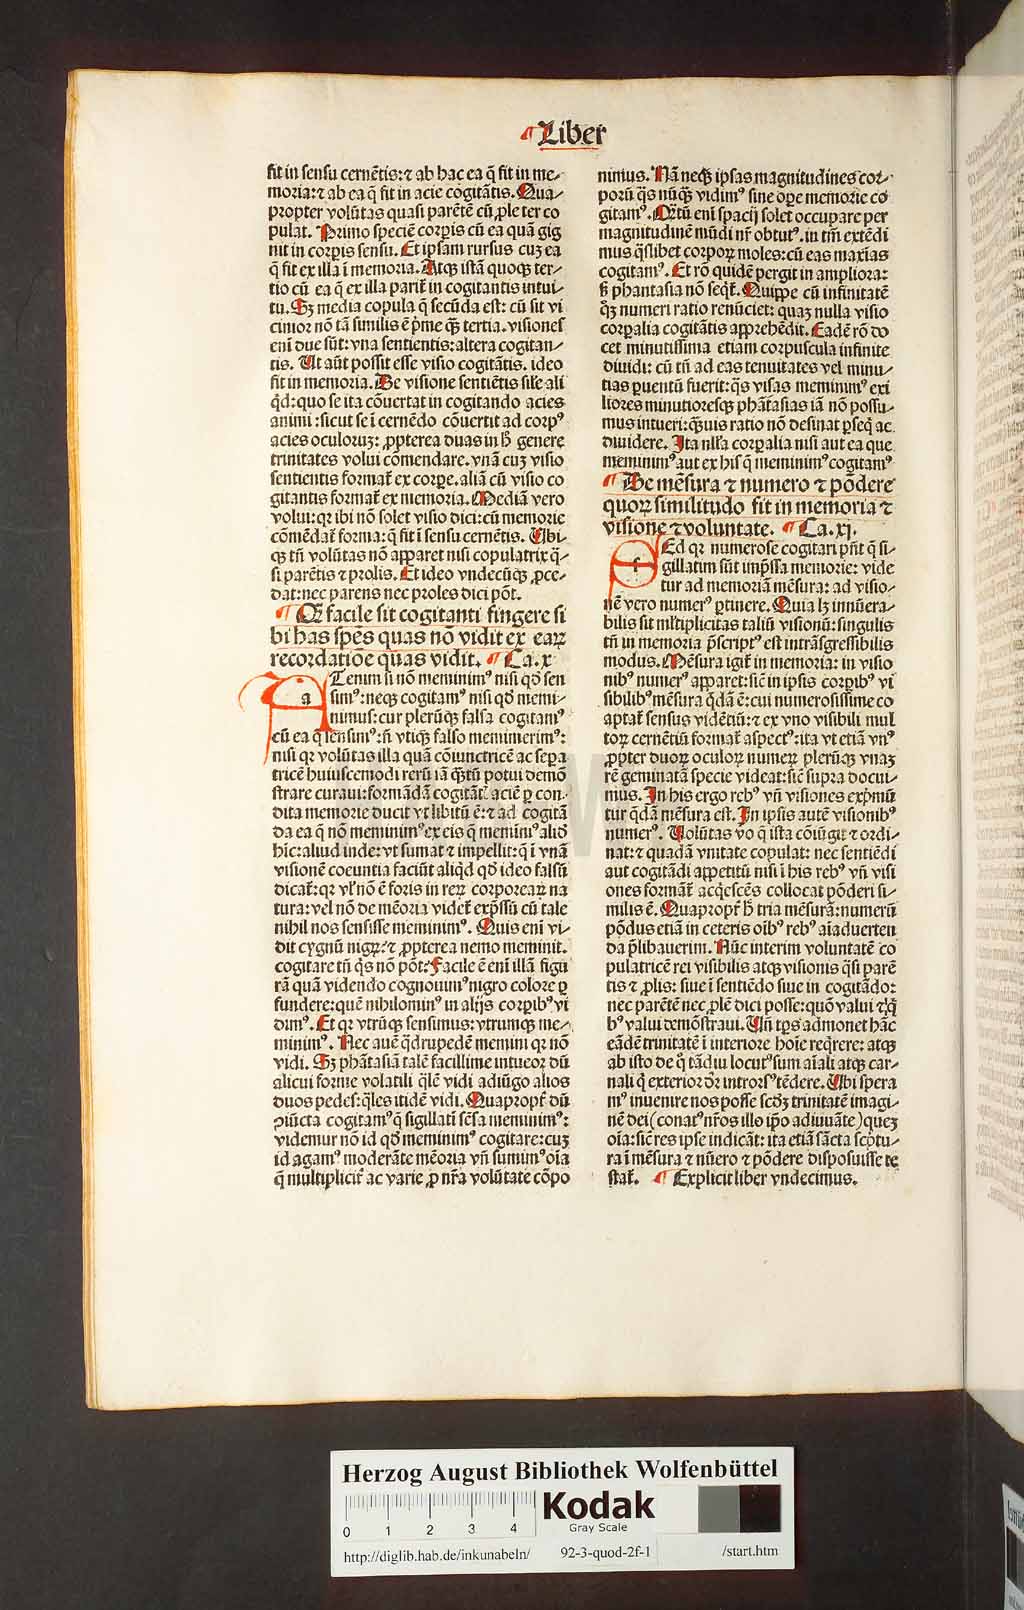 ¶Liber
fit in sensu cernētis: ⁊ ab hac ea q̄ fit in me⸗
moria: ⁊ ab ea q̄ fit in acie cogitātis. Qua⸗
propter volūtas quasi parētē cū ꝓle ter co
pulat. Primo speciē corpis cū ea quā gig
nit in corpis sensu. Et ipsam rursus cuꝫ ea
q̄ fit ex illa ī memoria. Atqꝫ istā quoqꝫ ter⸗
tio cū ea q̄ ex illa parit̄ in cogitantis intui⸗
tu. Sꝫ media copula q̄ secūda est: cū sit vi
cinior nō tā similis ē p̄me qꝫ̄ tertia. visiones
eni due sūt: vna sentientis: altera cogitan⸗
tis. Ut aūt possit esse visio cogitātis. ideo
fit in memoria. De visione sentiētis sil̄e ali
q̄d: quo se ita cōuertat in cogitando acies
animi: sicut se ī cernēdo cōuertit ad corpꝰ
acies oculoruꝫ: ꝓpterea duas in h̄ genere
trinitates volui cōmendare. vnā cuꝫ visio
sentientis format̄ ex corpe. aliā cū visio co
gitantis format̄ ex memoria. Mediā vero
volui: qꝛ ibi nō solet visio dici: cū memorie
cōmēdat̄ forma: q̄ fit ī sensu cernētis. Ubi⸗
qꝫ tn̄ volūtas nō apparet nisi copulatrix q̄⸗
si parētis ⁊ prolis. Et ideo vndecūqꝫ ꝓce⸗
dat: nec parens nec proles dici pōt.
¶ Qꝫ facile sit cogitanti fingere si
bi has spēs quas nō vidit ex earꝝ
recordatiōe quas vidit. ¶ Ca. x
ATenim si nō meminimꝰ nisi qđ sen
simꝰ: neqꝫ cogitamꝰ nisi qđ memi⸗
nimus: cur plerūqꝫ falsa cogitamꝰ
cū ea q̄ sensimꝰ: n̄ vtiqꝫ falso meminerimꝰ:
nisi qꝛ volūtas illa quā cōiunctricē ac sepa
tricē huiuscemodi rerū iā qꝫ̄tū potui demō
strare curaui: formādā cogitāt̄ aciē ꝑ con⸗
dita memorie ducit vt libitū ē: ⁊ ad cogitā
da ea q̄ nō meminimꝰ ex eis q̄ meminimꝰ aliđ
hīc: aliud inde: vt sumat ⁊ impellit: q̄ ī vnā
visionē coeuntia faciūt aliq̄d qđ ideo falsū
dicat̄: qꝛ vl̄ nō ē foris in reꝝ corporearꝝ na
tura: vel nō de mēoria videt̄ exp̄ssū cū tale
nihil nos sensisse meminimꝰ. Quis eni vi⸗
dit cygnū nigꝝ? ⁊ ꝓpterea nemo meminit.
cogitare tn̄ q̄s nō pōt? Facile ē eni illā figu
rā quā videndo cognouimꝰ nigro colore ꝑ
fundere: quē nihilominꝰ in alijs corpibꝰ vi
dimꝰ. Et qꝛ vtrūqꝫ sensimus: vtrumqꝫ me⸗
minimꝰ. Nec auē q̄drupedē memini qꝛ nō
vidi. Sꝫ phātasiā talē facillime intueor dū
alicui forme volatili q̄lē vidi adiūgo alios
duos pedes: q̄les itidē vidi. Quapropt̄ dū
ꝯiūcta cogitamꝰ q̄ sigillatī sēsa meminimꝰ:
videmur nō id qđ meminimꝰ cogitare: cuꝫ
id agamꝰ moderāte mēoria vn̄ sumimꝰ oīa
q̄ multiplicit̄ ac varie ꝓ nr̄a volūtate cōpo
nimus. Nā neqꝫ ipsas magnitudines cor⸗
porū q̄s nūqꝫ vidimꝰ sine ope memorie co
gitamꝰ. Qꝫ̄tū eni spacij solet occupare per
magnitudinē mūdi nr̄ obtutꝰ. in tm̄ extēdi
mus q̄slibet corporꝝ moles: cū eas maxīas
cogitamꝰ. Et rō quidē pergit in ampliora:
sꝫ phantasia nō seqt̄. Quippe cū infinitatē
qꝫ numeri ratio renūciet: quaꝫ nulla visio
corpalia cogitātis apprehēdit. Eadē rō do
cet minutissima etiam corpuscula infinite
diuidi: cū tn̄ ad eas tenuitates vel minu⸗
tias ꝑuentū fuerit: q̄s visas meminimꝰ exi
liores minutioresqꝫ phātasias iā nō possu⸗
mus intueri: qꝫuis ratio nō desinat ꝑseq̄ ac
diuidere. Ita nll̄a corpalia nisi aut ea que
meminimꝰ aut ex his q̄ meminimꝰ cogitamꝰ
¶ De mēsura ⁊ numero ⁊ pōdere
quorꝝ similitudo fit in memoria ⁊
visione ⁊ voluntate. ¶ Ca. xj.
SEd qꝛ numerose cogitari pn̄t q̄ si⸗
gillatim sūt imp̄ssa memorie: vide
tur ad memoriā mēsura: ad visio⸗
nē vero numerꝰ ꝑtinere. Quia lꝫ innūera⸗
bilis sit ml̄tiplicitas taliū visionū: singulis
tn̄ in memoria p̄scriptꝰ est intrāsgressibilis
modus. Mēsura igit̄ in memoria: in visio
nibꝰ numerꝰ apparet: sic̄ in ipsis corpibꝰ vi
sibilibꝰ mēsura q̄dā ē: cui numerosissime co
aptat̄ sensus vidētiū: ⁊ ex vno visibili mul
torꝝ cernētiū format̄ aspectꝰ: ita vt etiā vnꝰ
ꝓpter duorꝝ oculorꝝ numerꝝ plerūqꝫ vnaꝫ
rē geminatā specie videat: sic̄ supra docui⸗
mus. In his ergo rebꝰ vn̄ visiones exp̄mū
tur q̄dā mēsura est. In ipsis autē visionibꝰ
numerꝰ. Uolūtas v̄o q̄ ista cōiūgit ⁊ ordi⸗
nat: ⁊ quadā vnitate copulat: nec sentiēdi
aut cogitādi appetitū nisi ī his rebꝰ vn̄ visi
ones format̄ acq̄escēs collocat pōderi si⸗
milis ē. Quapropt̄ h̄ tria mēsurā: numerū
pōdus etiā in ceteris oībꝰ rebꝰ aīaduerten
da p̄libauerim. Nūc interim voluntatē co
pulatricē rei visibilis atqꝫ visionis q̄si parē
tis ⁊ ꝓlis: siue ī sentiēdo siue in cogitādo:
nec parētē nec ꝓlē dici posse: quō valui ⁊ qꝫ
bꝰ valui demōstraui. Un̄ tps admonet hāc
eādē trinitatē ī interiore hoīe req̄rere: atqꝫ
ab isto de q̄ tādiu locutꝰ sum aīali atqꝫ car⸗
nali q̄ exterior dr̄ introrsꝰ tēdere. Ubi spera
mꝰ inuenire nos posse scđꝫ trinitatē imagi⸗
nē dei (conatꝰ nr̄os illo ip̄o adiuuāte) queꝫ
oīa: sic̄ res ipse indicāt: ita etiā sācta scptu⸗
ra ī mēsura ⁊ nūero ⁊ pōdere disposuisse te
stat̄. ¶ Explicit liber vndecimus.
Herzog August Bibliothek Wolfenbüttel
0 1 2 3 4
Kodak
Gray Scale
http://diglib.hab.de/inkunabeln/ 92-3-quod-2f-1 /start.htm